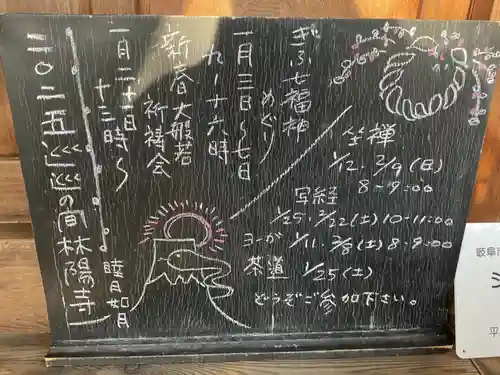 ぎふ七福神
めぐり
一月三日〜七日
九〜十六時
新春大般若
祈祷会
一月二十一日
十三時〜
二〇二五巡巡の間林陽寺
睦月如月
坐禅
1/12. 2/9(日)
8-9:00
写経
1/25. 2/22(土) 10-11:00
ヨーガ 1/11. 2/8(土) 8-9:00
茶道 1/25(土)
どうぞご参加下さい。
岐阜
平